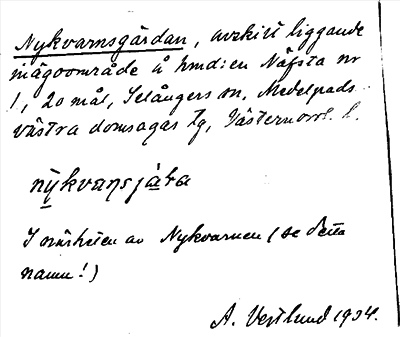 Nykvarnsgärdan, avskilt liggande
inägoområde å hmd:en Näfsta nr
1, 20 mål, Selångers sn, Medelpads
västra domsagas tg, Västernorrl. l.
nykvaṇsjäṛa
I närheten av Nykvarnen (se detta
namn!)
A. Vestlund 1934.